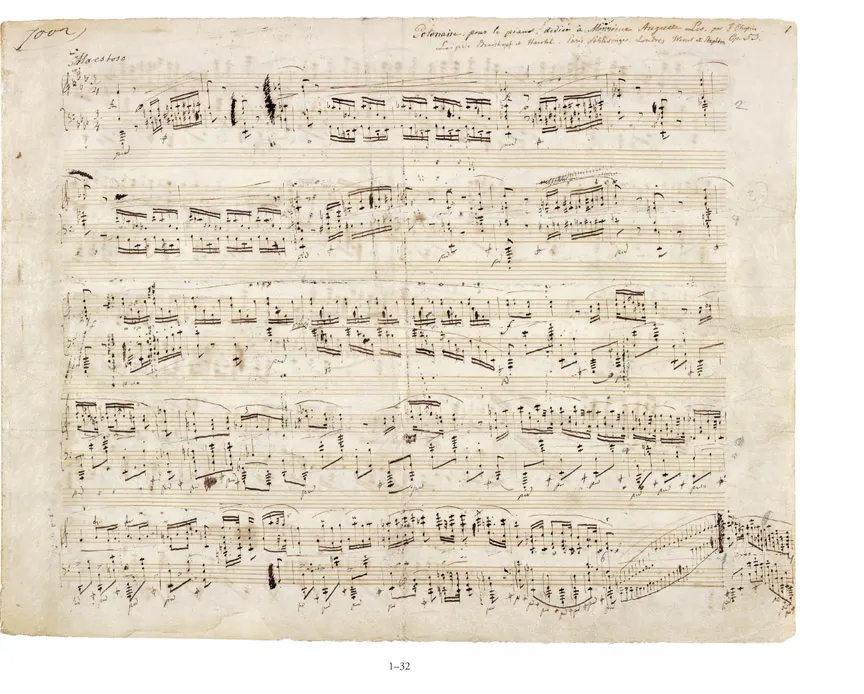 Polonaise pour le piano, dédiée à Monsieur Auguste Leo, par F. Chopin 1
Leipsic Breitkopf et Härtel. Paris Schlesinger, Londres Wessel et Stapleton Op. 53.
Maestoso
2
1–32